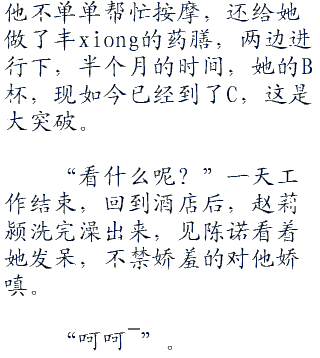 他不单单帮忙按摩，还给她
做了丰xiong的药膳，两边进
行下，半个月的时间，她的B
杯，现如今已经到了C，这是
大突破。
“看什么呢？”一天工
作结束，回到酒店后，赵莉
颍洗完澡出来，见陈诺看着
她发呆，不禁娇羞的对他娇
嗔。
“呵呵¯”。